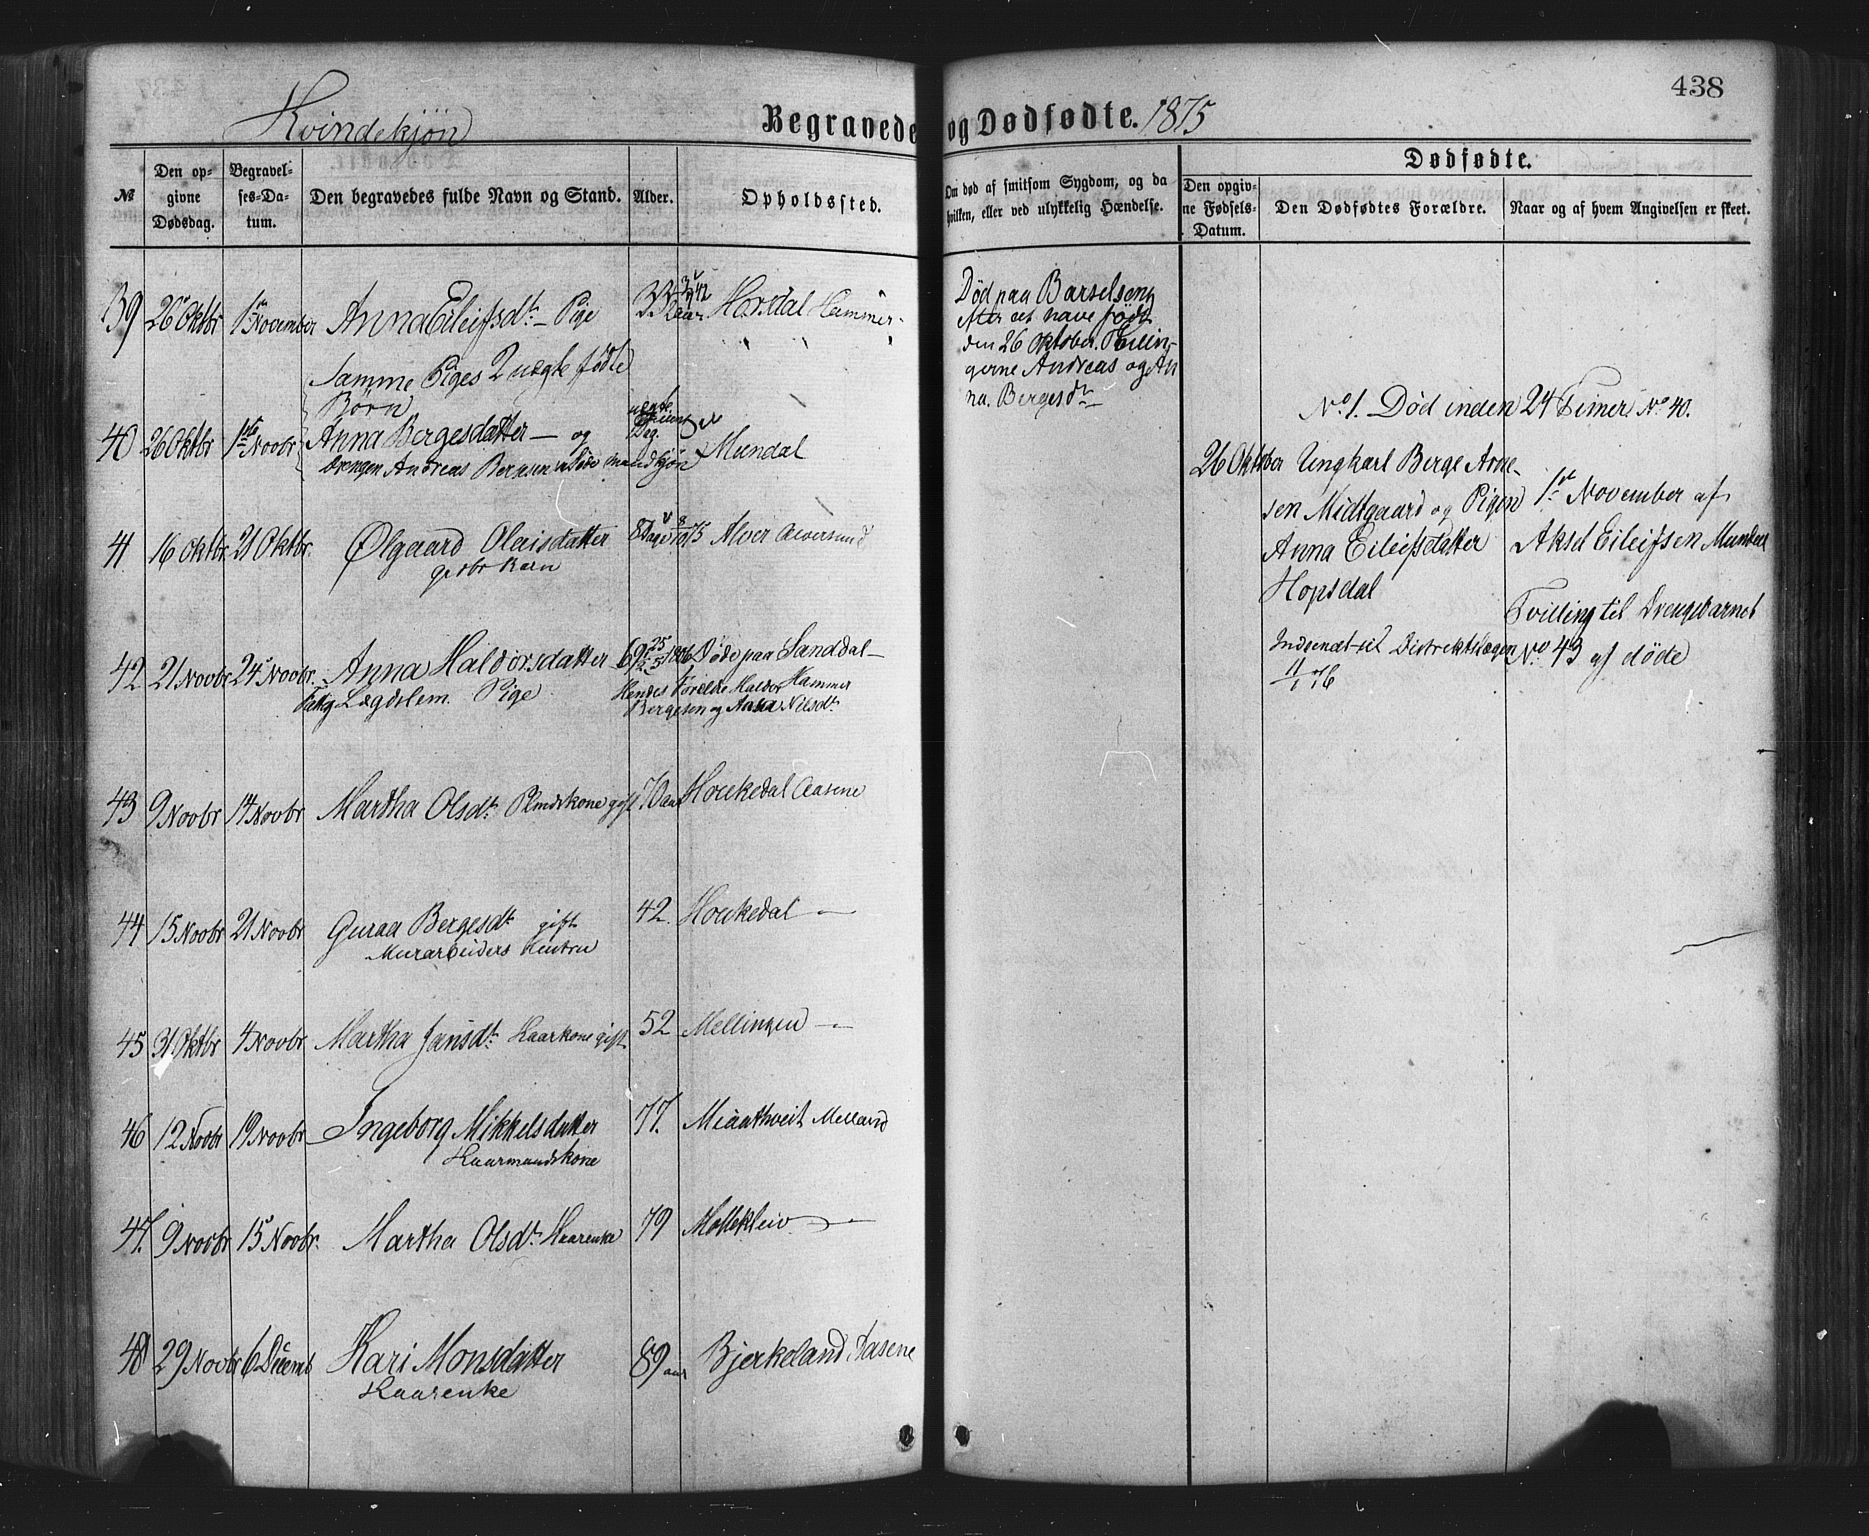 438
Kvindekjøn
Begravede og Dødfødte. 1875
Dødfødte.
№
Den opgivne Dødsdag.
Begravelses-Datum.
Den begravedes fulde Navn og Stand.
Alder.
Opholdssted.
Om død af smitsom Sygdom, og da hvilken, eller ved ulykkelig Hændelse.
Den opgivne Fødsels-Datum.
Den Dødfødtes Forældre.
Naar og af hvem Angivelsen er skeet.
39 26 Oktbr 1 November Anna Eileifsdtr – Pige 33 aar Hopsdal Hammer
Død paa Barselseng
efter at have født
den 26 Oktober Tvillin-
gerne Andreas og An
na Bergesdtr
Samme Piges 2 uægte fødte
Børn
40 26 Oktbr 1ste Novbr Anna Bergesdatter – og Mundal
Drengen Andreas Bergesen Mandkjøn
41 16 Oktbr 21 Oktbr. Ølgaard Olaisdatter 8 Dage 8/10 75 Alver Alversund
Gdbr Barn
42 21 Novbr 24 Novbr. Anna Haldorsdatter 69 25/5 1806 Døde paa Sanddal
Fattig Lægdslem. Pige Hendes Forældre Haldor Hammer
Bergesen og Anna Nilsdtr
43 9 Novbr 14 Novbr Martha Olsdtr gift 70 aar Houkedal Aasene
44 15 Novbr 21 Novbr Guraa Bergesdtr gift 42. Houkedal –
Murarbeiders Hustru
45 31 Oktbr 4 Novbr Martha Jansdtr Kaarkone gift 52 Mellingen –
46 12 Novbr 19 Novbr Ingeborg Mikkelsdatter 77. Miaathveit Melland
Kaarmandskone
47. 9 Novbr 15 Novbr. Martha Olsdtr Kaarenke 79 Mollekleiv –
48 29 Novbr 6 Decemb Kari Monsdatter 89 aar Bjerkeland Aasene
Kaarenke
No 1. Død inden 24 Timer No 40.
26 Oktober Ungkarl Berge Arne-
sen Midtgaard og Pigen
Anna Eileifsdatter
Hopsdal
Indsendt til Distriktslægen
11/1 76
1ste November af
Aksel Eileifsen Mundal
Tvilling til Drengebarnet
No 43 af døde